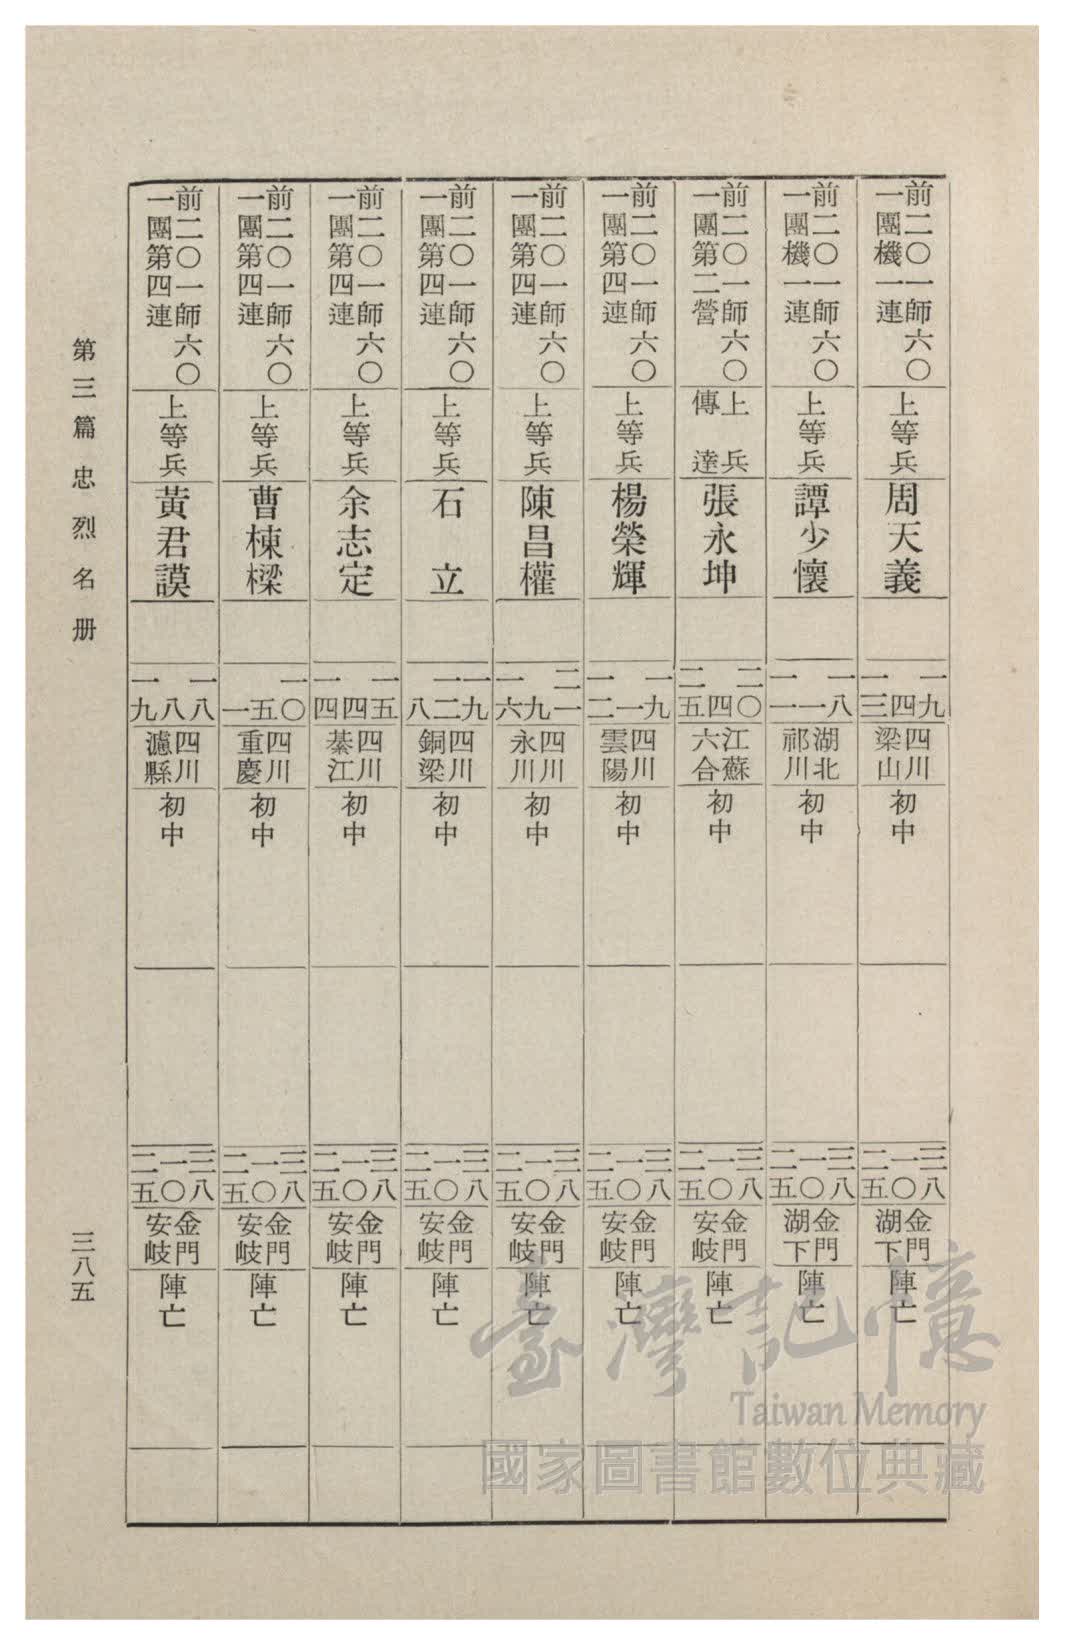 前二〇一師六〇
一團機一連
上等兵
周天義
一九
四
一三
四川
梁山
初中
三八
一〇
二五
金門
湖下
陣亡
前二〇一師六〇
一團機一連
上等兵
譚少懷
一八
一
一一
湖北
祁川
初中
三八
一〇
二五
金門
湖下
陣亡
前二〇一師六〇
一團第二營
上兵
傳達
張永坤
二〇
四
二五
江蘇
六合
初中
三八
一〇
二五
金門
安岐
陣亡
前二〇一師六〇
一團第四連
上等兵
楊榮輝
一九
一
二二
四川
雲陽
初中
三八
一〇
二五
金門
安岐
陣亡
前二〇一師六〇
一團第四連
上等兵
陳昌權
二一
九
一六
四川
永川
初中
三八
一〇
二五
金門
安岐
陣亡
前二〇一師六〇
一團第四連
上等兵
石立
一九
一二
八
四川
銅梁
初中
三八
一〇
二五
金門
安岐
陣亡
前二〇一師六〇
一團第四連
上等兵
余志定
一五
四
一四
四川
綦江
初中
三八
一〇
二五
金門
安岐
陣亡
前二〇一師六〇
一團第四連
上等兵
曹棟樑
一〇
五
一
四川
重慶
初中
三八
一〇
二五
金門
安岐
陣亡
前二〇一師六〇
一團第四連
上等兵
黃君謨
一八
八
一九
四川
瀘縣
初中
三八
一〇
二五
金門
安岐
陣亡
第三篇 忠烈名册
三八五
臺灣記憶
Taiwan Memory
國家圖書館數位典藏